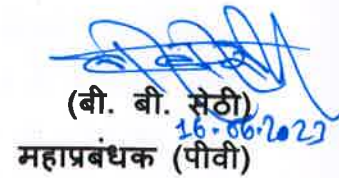 (बी. बी. सेठी)
16.06.2023
महाप्रबंधक (पीवी)